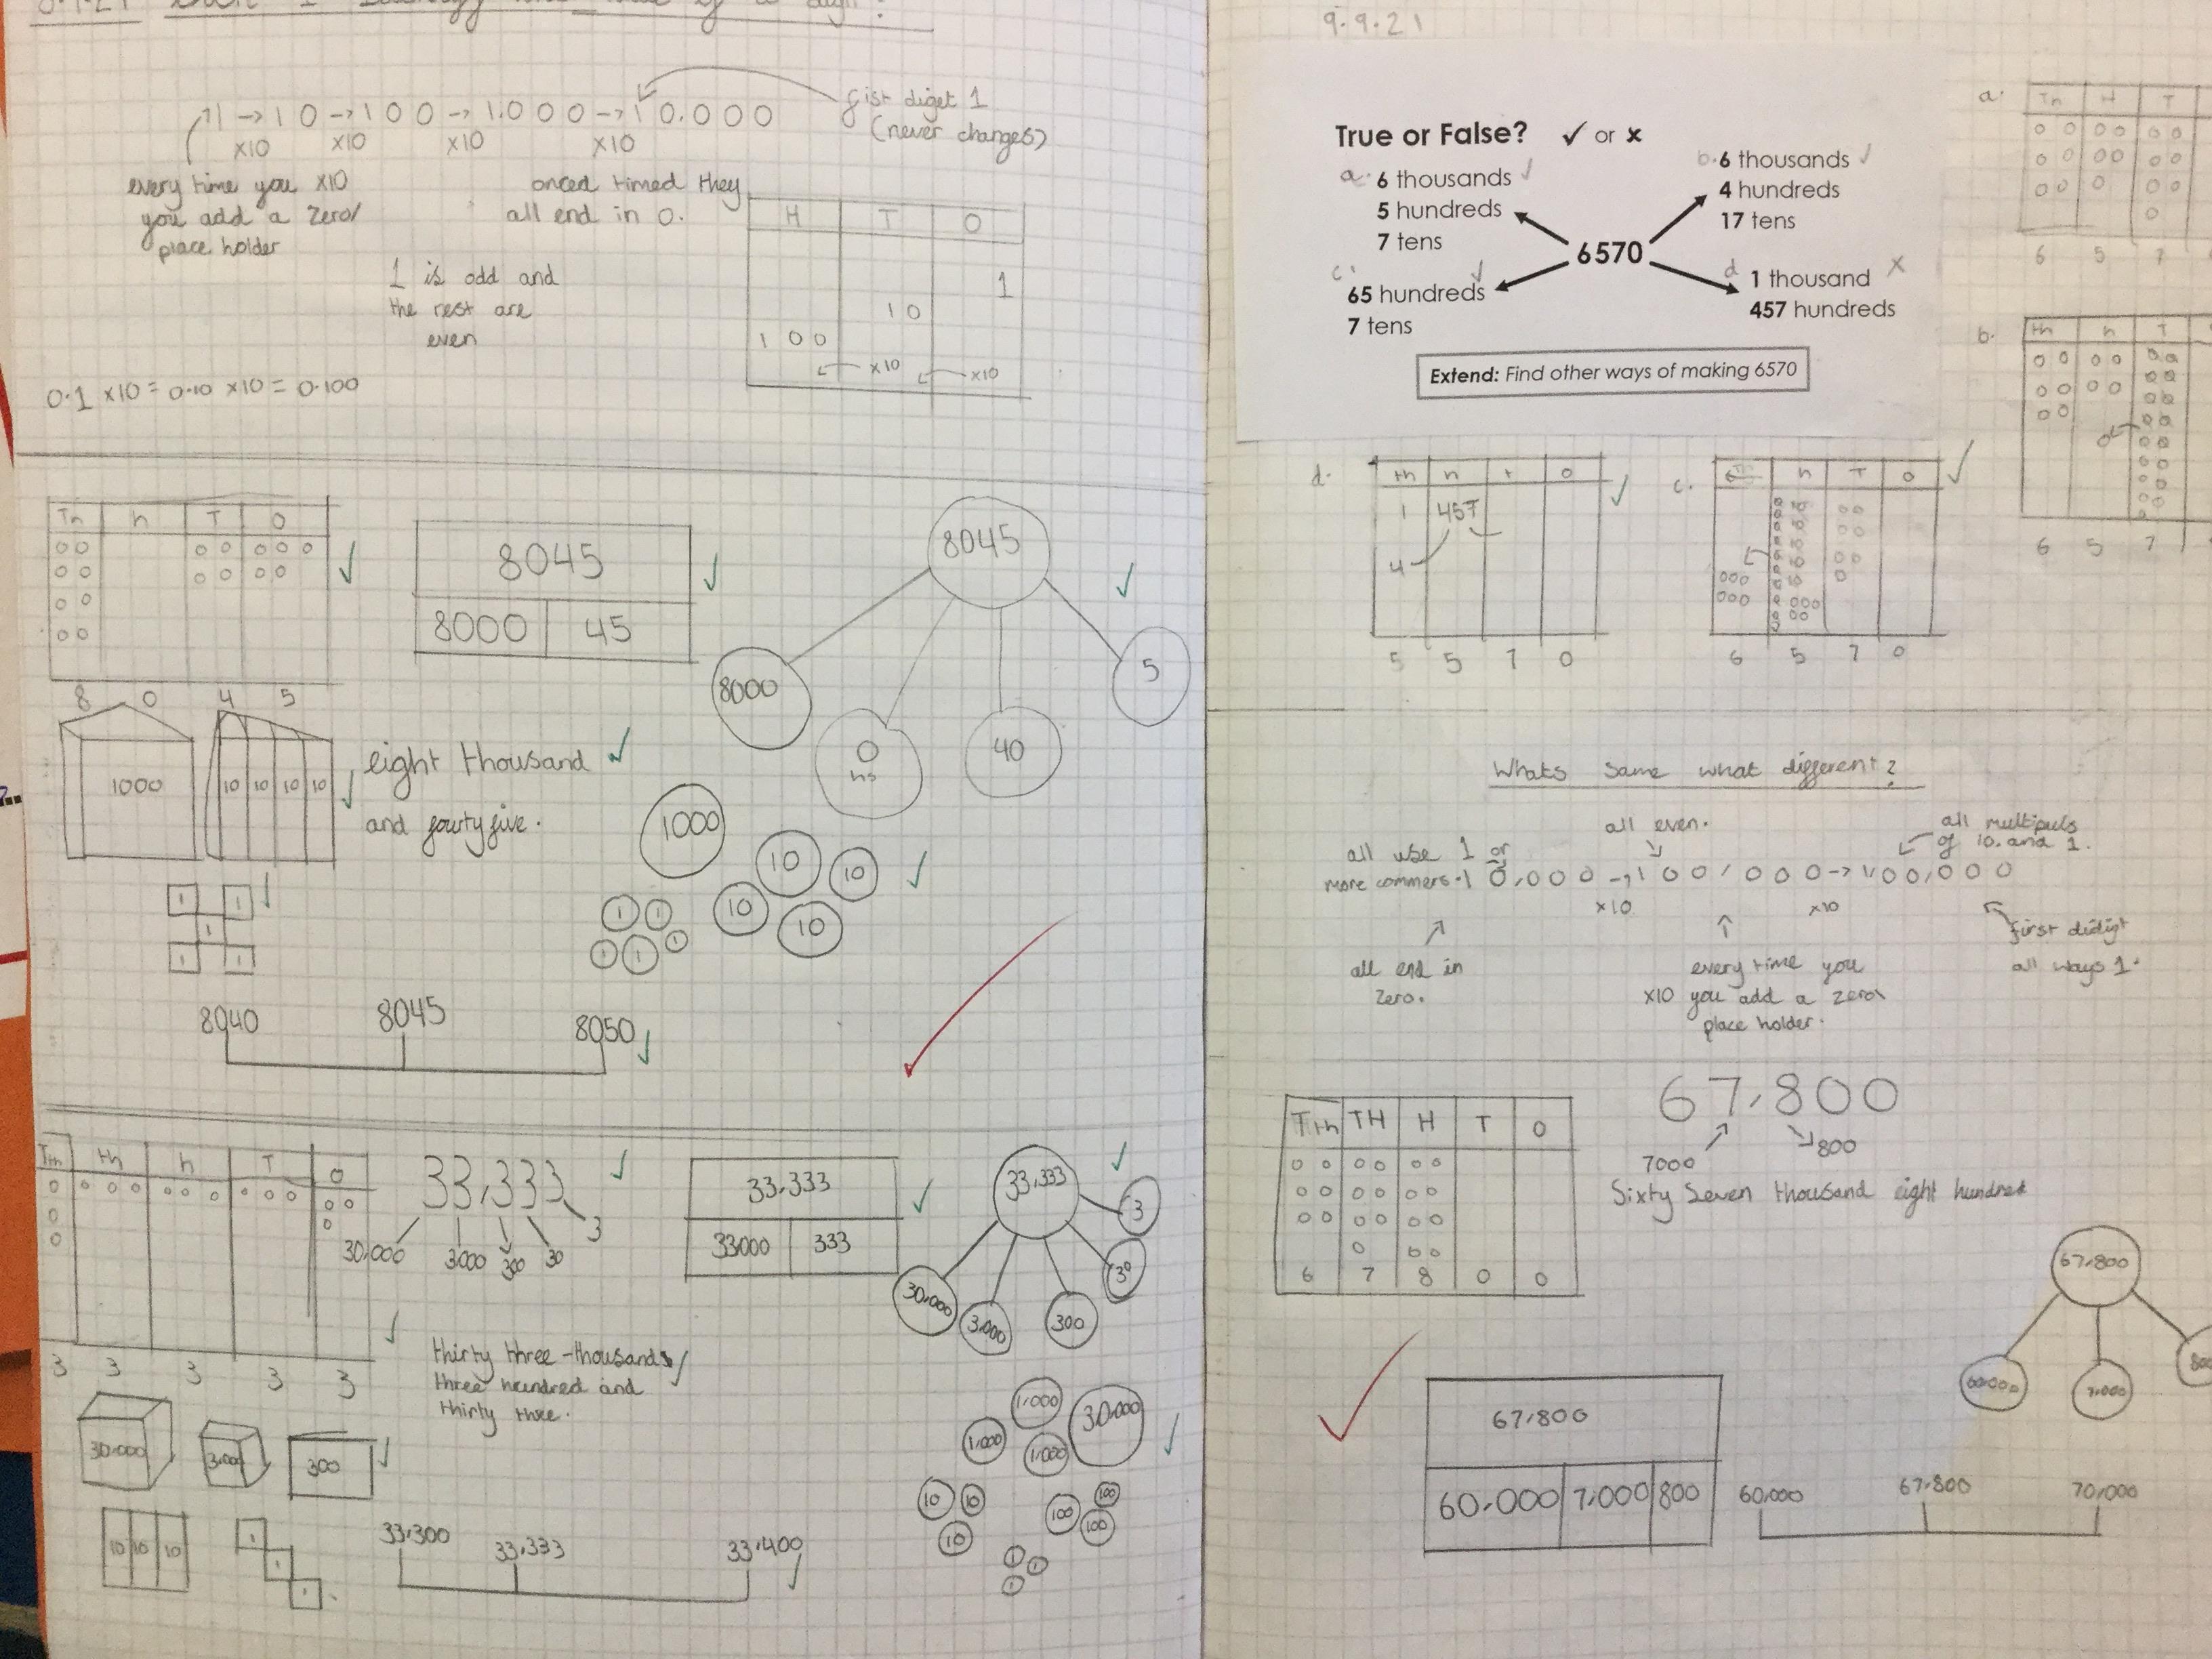 1 → 10 → 100 → 1.000 → 10.000
x10 x10 x10 x10
gist diget 1
(never changes)
every time you x10
you add a zero/
place holder
onced timed they
all end in 0.
1 is odd and
the rest are
even
H T O
1
10
100
x10 x10
0.1 x10 = 0.10 x10 = 0.100
Th h T O
8 0 4 5
8045
8000 45
8045
8000
0
hs
40
5
1000
10 10 10 10
eight thousand
and fourty five.
1000
10 10
10 10
1 1
1 1 1
1 1
1
1 1
8040 8045 8050
Tth th h T O
3 3 3 3 3
33,333
30,000 3000 300 30 3
33,333
33000 333
33,333
3
30
30,000 3,000 300
thirty three-thousands/
three hundred and
thirty three.
30,000 3,000 300
10 10 10
1
1
1
33,300 33,333 33,400
1,000
1,000 1,000
30,000
10 10
10
100
100 100
1 1
1
9.9.21
True or False? ✓ or x
a. 6 thousands
5 hundreds
7 tens
b. 6 thousands
4 hundreds
17 tens
6570
c. 65 hundreds
7 tens
d 1 thousand
457 hundreds
Extend: Find other ways of making 6570
a. Th H T
6 5 7
b. th h T
6 5 7
d. th h t o
1 457
4
5 5 7 0
c. h T o
6 5 7 0
Whats same what different?
all use 1 or
more commers.
all even.
all multipuls
of 10. and 1.
10,000 → 100,000 → 1,00,000
x10 x10
all end in
zero.
every time you
x10 you add a zero\
place holder.
first didigt
all ways 1.
Tth TH H T O
6 7 8 0 0
67,800
7000 800
Sixty Seven thousand eight hundred
67,800
60,000 7,000
67,800
60,000 7,000 800
60,000 67,800 70,000